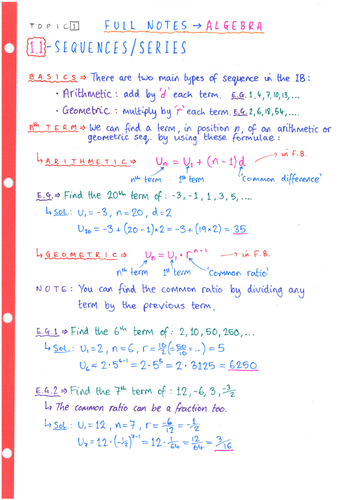 TOPIC 1 FULL NOTES → ALGEBRA
1.1 - SEQUENCES/SERIES
BASICS ⇒ There are two main types of sequence in the IB:
· Arithmetic : add by 'd' each term. E.G. 1, 4, 7, 10, 13, ...
· Geometric : multiply by 'r' each term. E.G. 2, 6, 18, 54, ...
nth TERM ⇒ We can find a term, in position n, of an arithmetic or
geometric seq. by using these formulae:
↳ ARITHMETIC ⇒ Un = U1 + (n-1)d → in F.B.
nth term 1st term 'common difference'
E.G. ⇒ Find the 20th term of : -3, -1, 1, 3, 5, ...
↳ Sol: U1 = -3, n = 20, d = 2
U20 = -3 + (20-1)×2 = -3 + (19×2) = 35
↳ GEOMETRIC ⇒ Un = U1 · r^n-1 → in F.B.
nth term 1st term 'common ratio'
NOTE: You can find the common ratio by dividing any
term by the previous term.
E.G.1 ⇒ Find the 6th term of : 2, 10, 50, 250, ...
↳ Sol: U1 = 2, n = 6, r = 10/2 (= 50/10 = ...) = 5
U6 = 2·5^6-1 = 2·5^5 = 2·3125 = 6250
E.G.2 ⇒ Find the 7th term of : 12, -6, 3, -3/2
↳ The common ratio can be a fraction too.
↳ Sol: U1 = 12, n = 7, r = -6/12 = -1/2
U7 = 12·(-1/2)^7-1 = 12·1/64 = 12/64 = 3/16